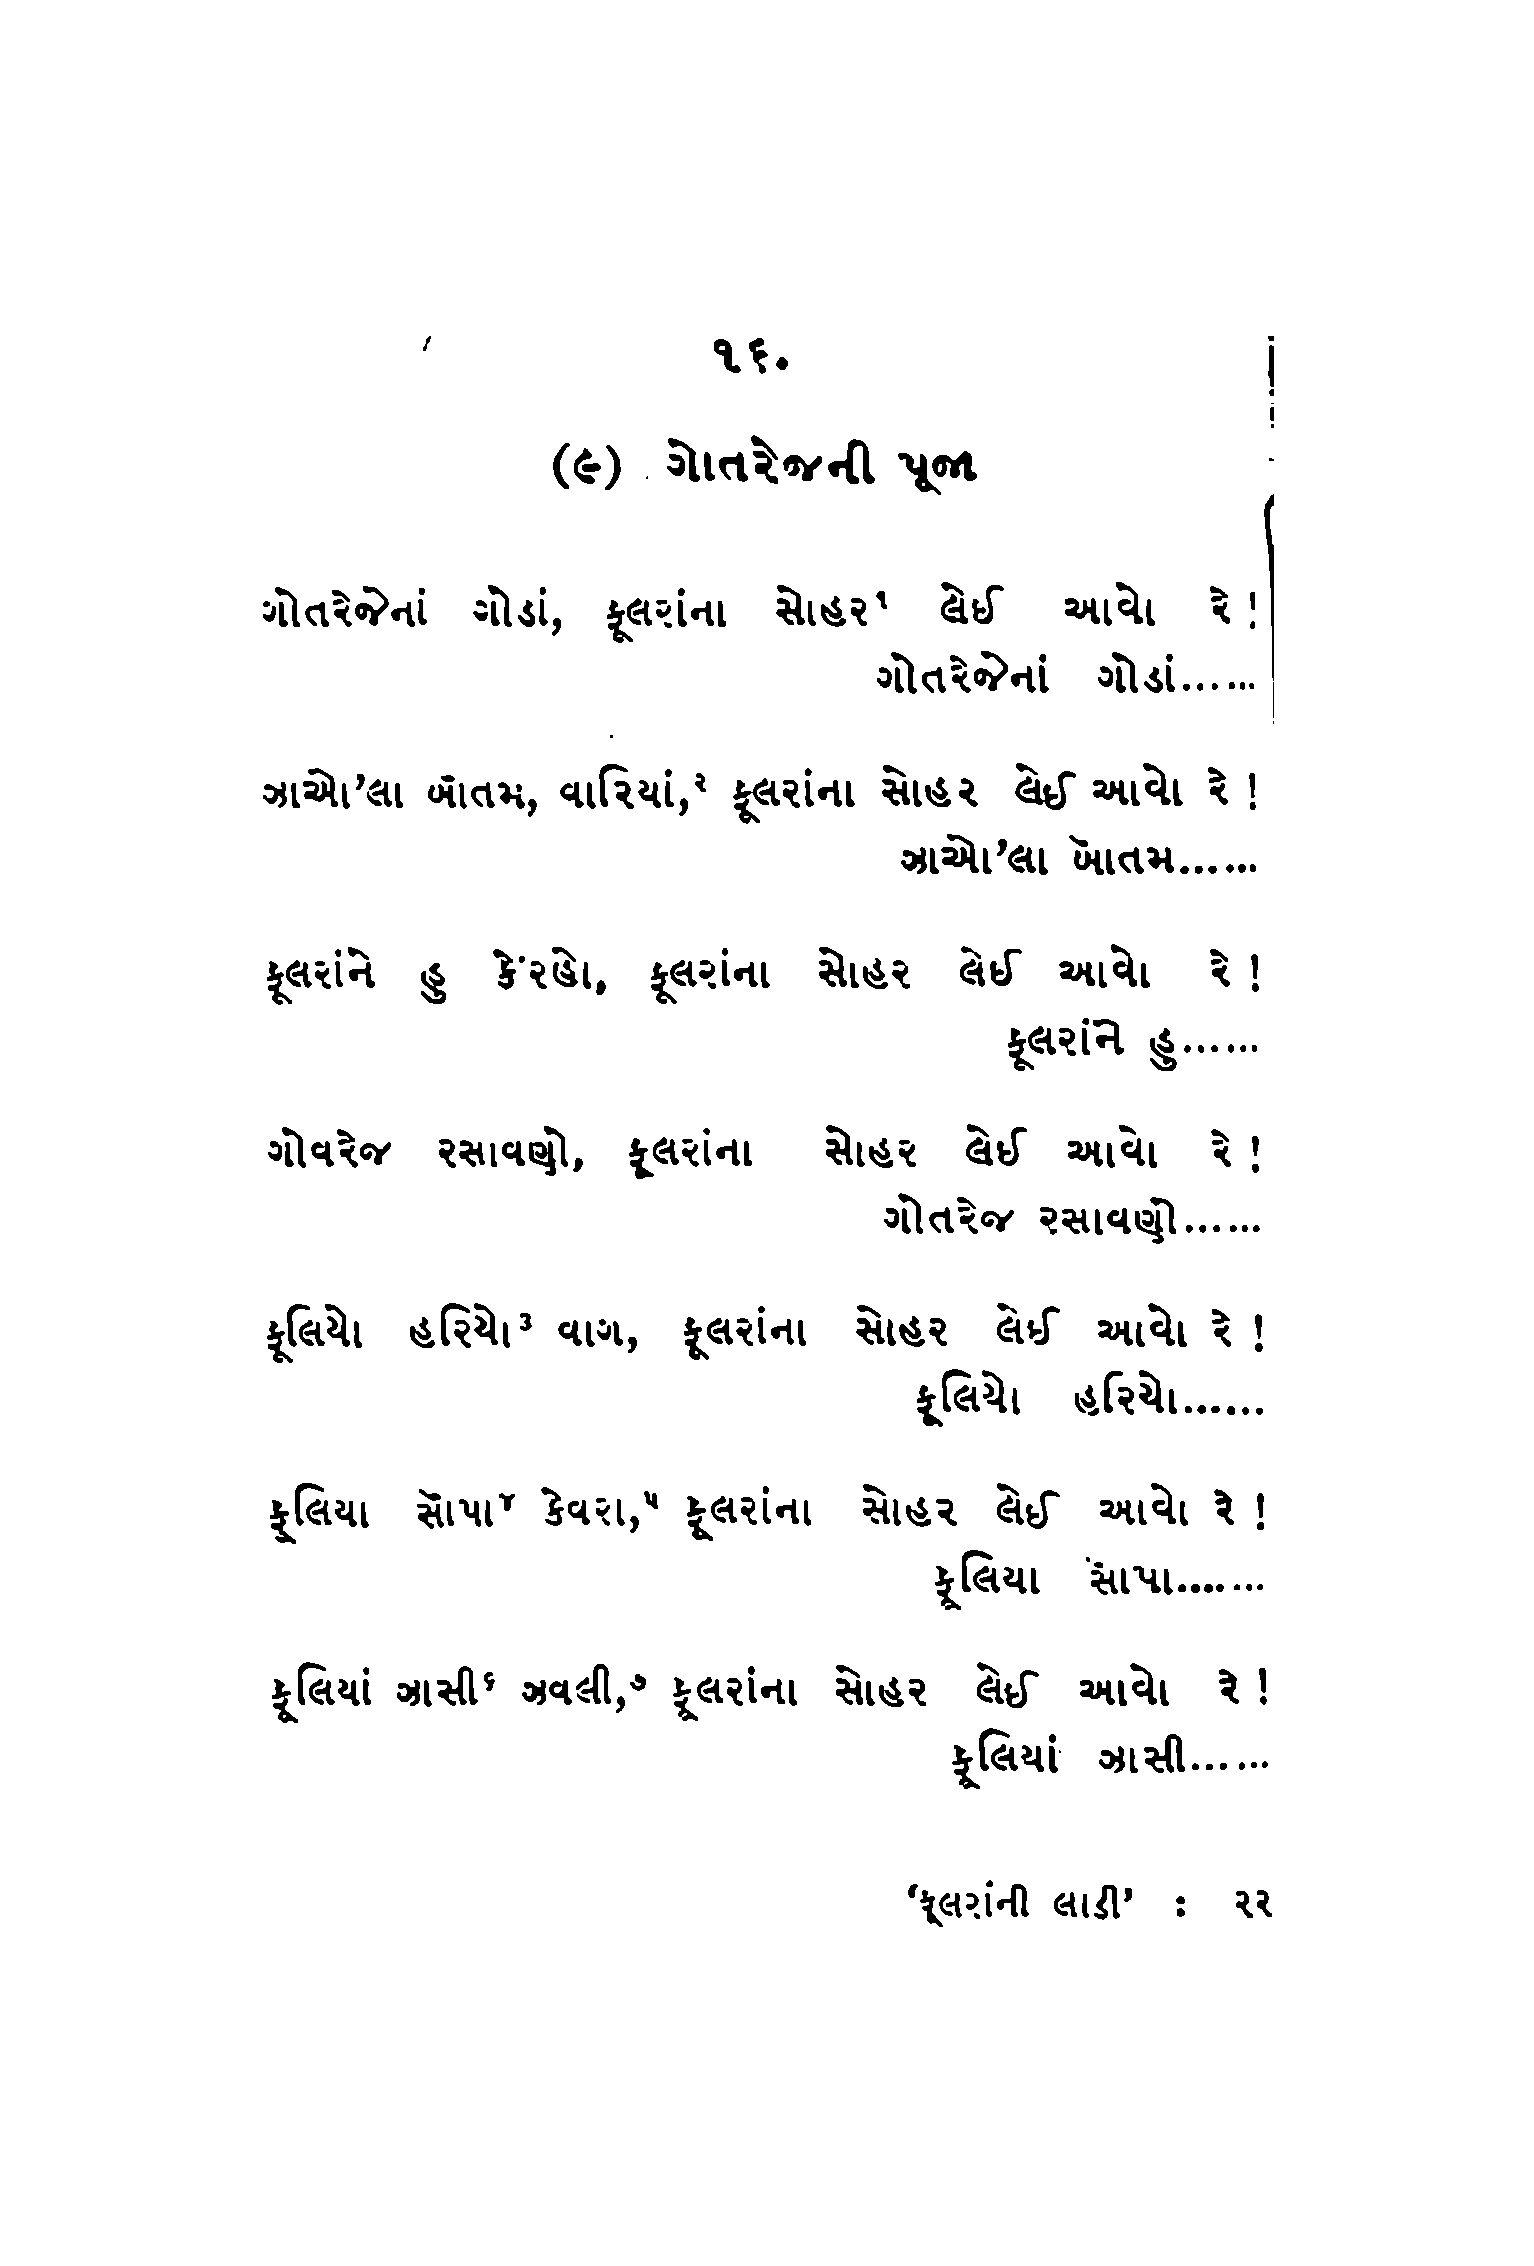 ૧૬.
(૯) ગોતરેજની પૂજા
ગોતરેજેનાં ગોડાં, ફૂલરાંના સોહર૧ લેઈ આવો રે !
ગોતરેજેનાં ગોડાં……
ઝાઓ'લા બૅાતમ, વારિયાં,૨ ફૂલરાંના સોહર લેઈ આવો રે !
ઝાઓ'લા બૅાતમ……
ફૂલરાંને હુ કે'રહો, ફૂલરાંના સોહર લેઈ આવો રે !
ફૂલરાંને હુ……
ગોવરેજ રસાવણો, ફૂલરાંના સોહર લેઈ આવો રે !
ગોતરેજ રસાવણો……
ફૂલિયો હરિયો૩ વાગ, ફૂલરાંના સોહર લેઈ આવો રે !
ફૂલિયો હરિયો……
ફૂલિયા સૅાપા૪ કેવરા,૫ ફૂલરાંના સોહર લેઈ આવો રે !
ફૂલિયા સૅાપા.……
ફૂલિયાં ઝાસી૬ ઝવલી,૭ ફૂલરાંના સોહર લેઈ આવો રે !
ફૂલિયાં ઝાસી……
'ફૂલરાંની લાડી' : ૨૨